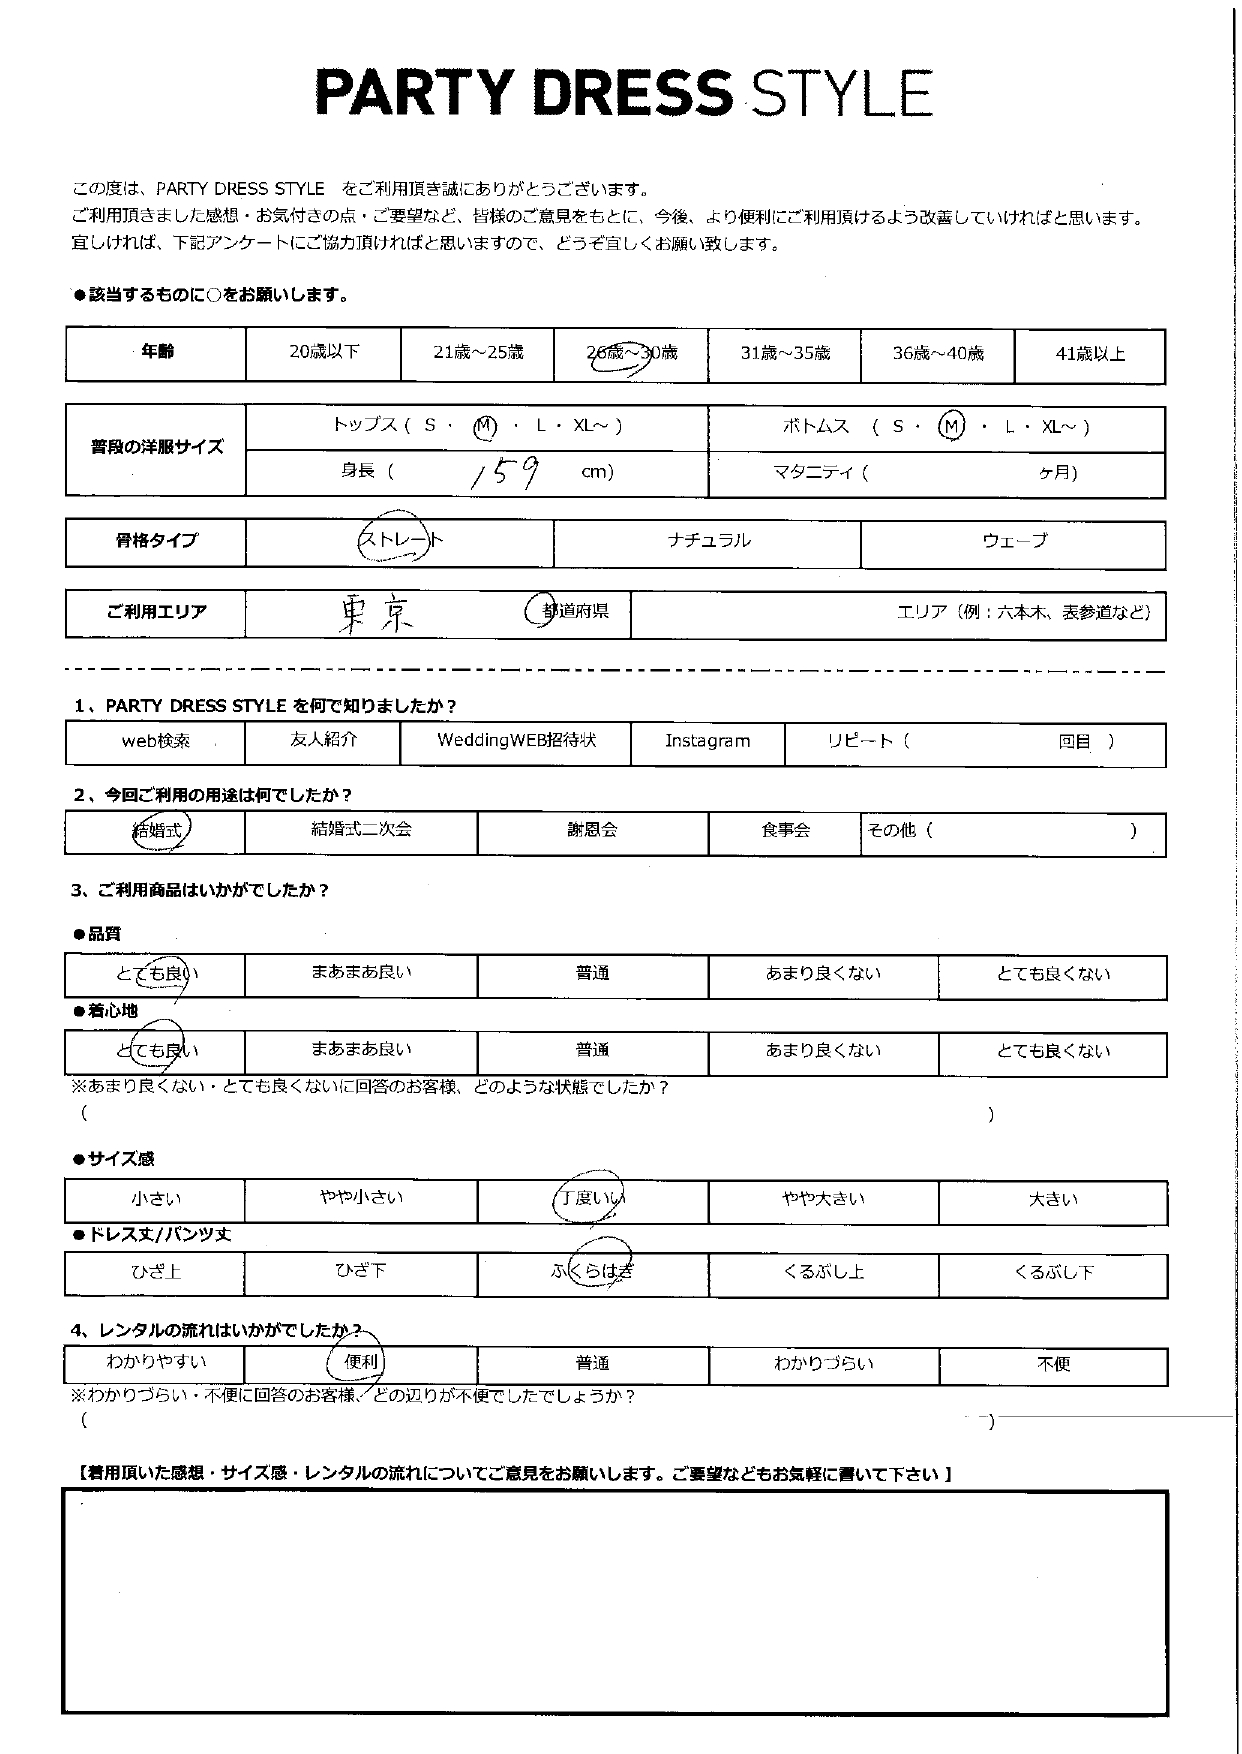 PARTY DRESS STYLE
この度は、PARTY DRESS STYLE　をご利用頂き誠にありがとうございます。
ご利用頂きました感想・お気付きの点・ご要望など、皆様のご意見をもとに、今後、より便利にご利用頂けるよう改善していければと思います。
宜しければ、下記アンケートにご協力頂ければと思いますので、どうぞ宜しくお願い致します。
●該当するものに○をお願いします。
年齢 20歳以下 21歳～25歳 26歳～30歳 31歳～35歳 36歳～40歳 41歳以上
普段の洋服サイズ トップス ( S ・ M ・ L ・ XL～ ) ボトムス ( S ・ M ・ L ・ XL～ )
身長 ( 159 cm) マタニティ ( ヶ月)
骨格タイプ ストレート ナチュラル ウェーブ
ご利用エリア 東京 都道府県 エリア（例：六本木、表参道など）
1、PARTY DRESS STYLE を何で知りましたか？
web検索 友人紹介 WeddingWEB招待状 Instagram リピート ( 回目 )
2、今回ご利用の用途は何でしたか？
結婚式 結婚式二次会 謝恩会 食事会 その他 ( )
3、ご利用商品はいかがでしたか？
●品質
とても良い まあまあ良い 普通 あまり良くない とても良くない
●着心地
とても良い まあまあ良い 普通 あまり良くない とても良くない
※あまり良くない・とても良くないに回答のお客様、どのような状態でしたか？
( )
●サイズ感
小さい やや小さい 丁度いい やや大きい 大きい
●ドレス丈/パンツ丈
ひざ上 ひざ下 ふくらはぎ くるぶし上 くるぶし下
4、レンタルの流れはいかがでしたか？
わかりやすい 便利 普通 わかりづらい 不便
※わかりづらい・不便に回答のお客様、どの辺りが不便でしたでしょうか？
( )
【着用頂いた感想・サイズ感・レンタルの流れについてご意見をお願いします。ご要望などもお気軽に書いて下さい】